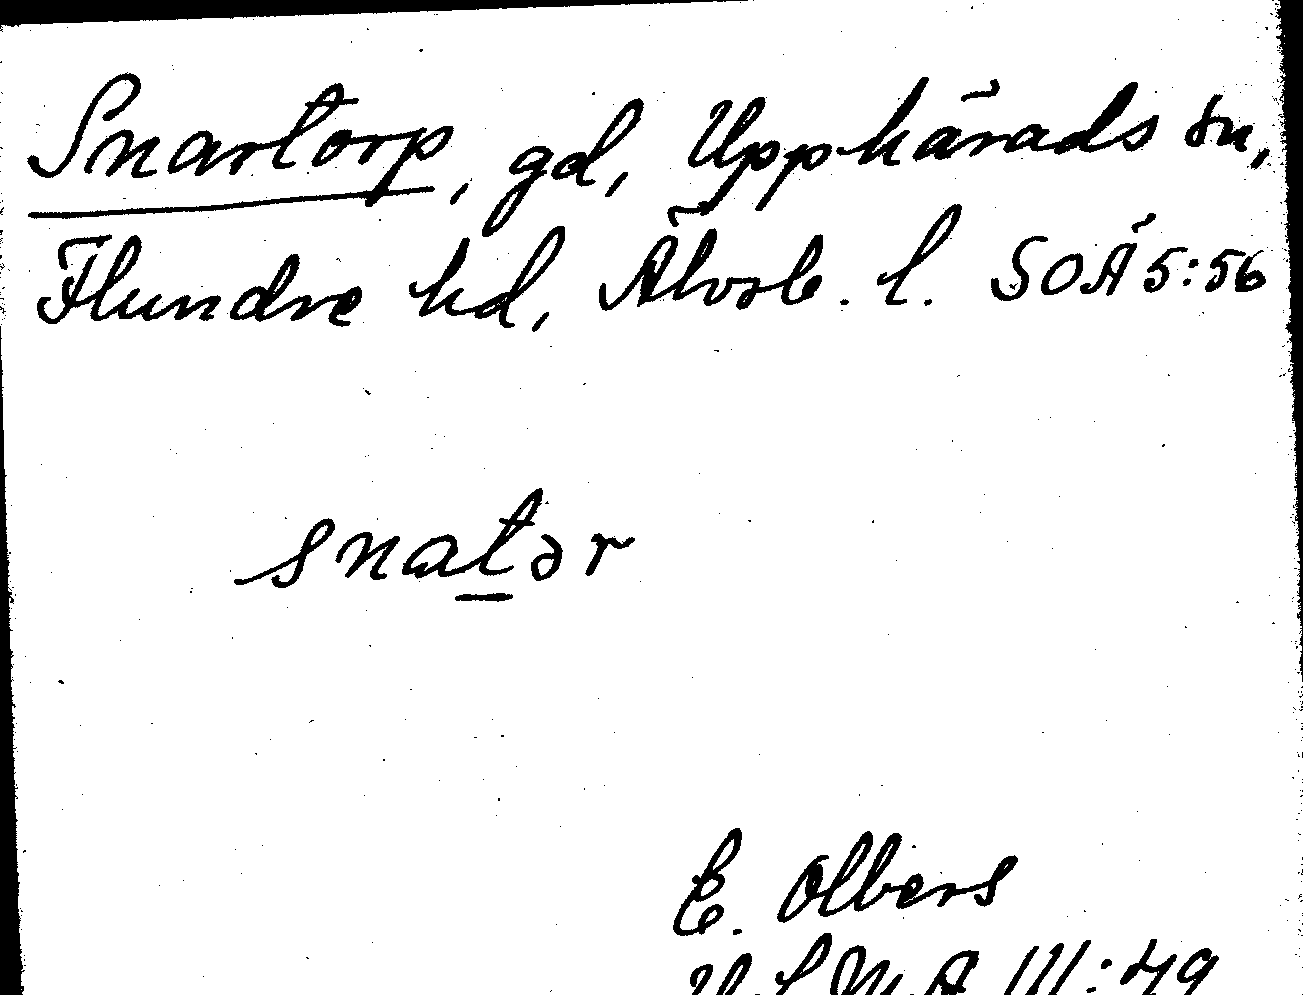 Snartorp, gd, Upphärads sn,
Flundre hd, Älvsb. l. SOÄ 5:56
snatər
E. Olbers